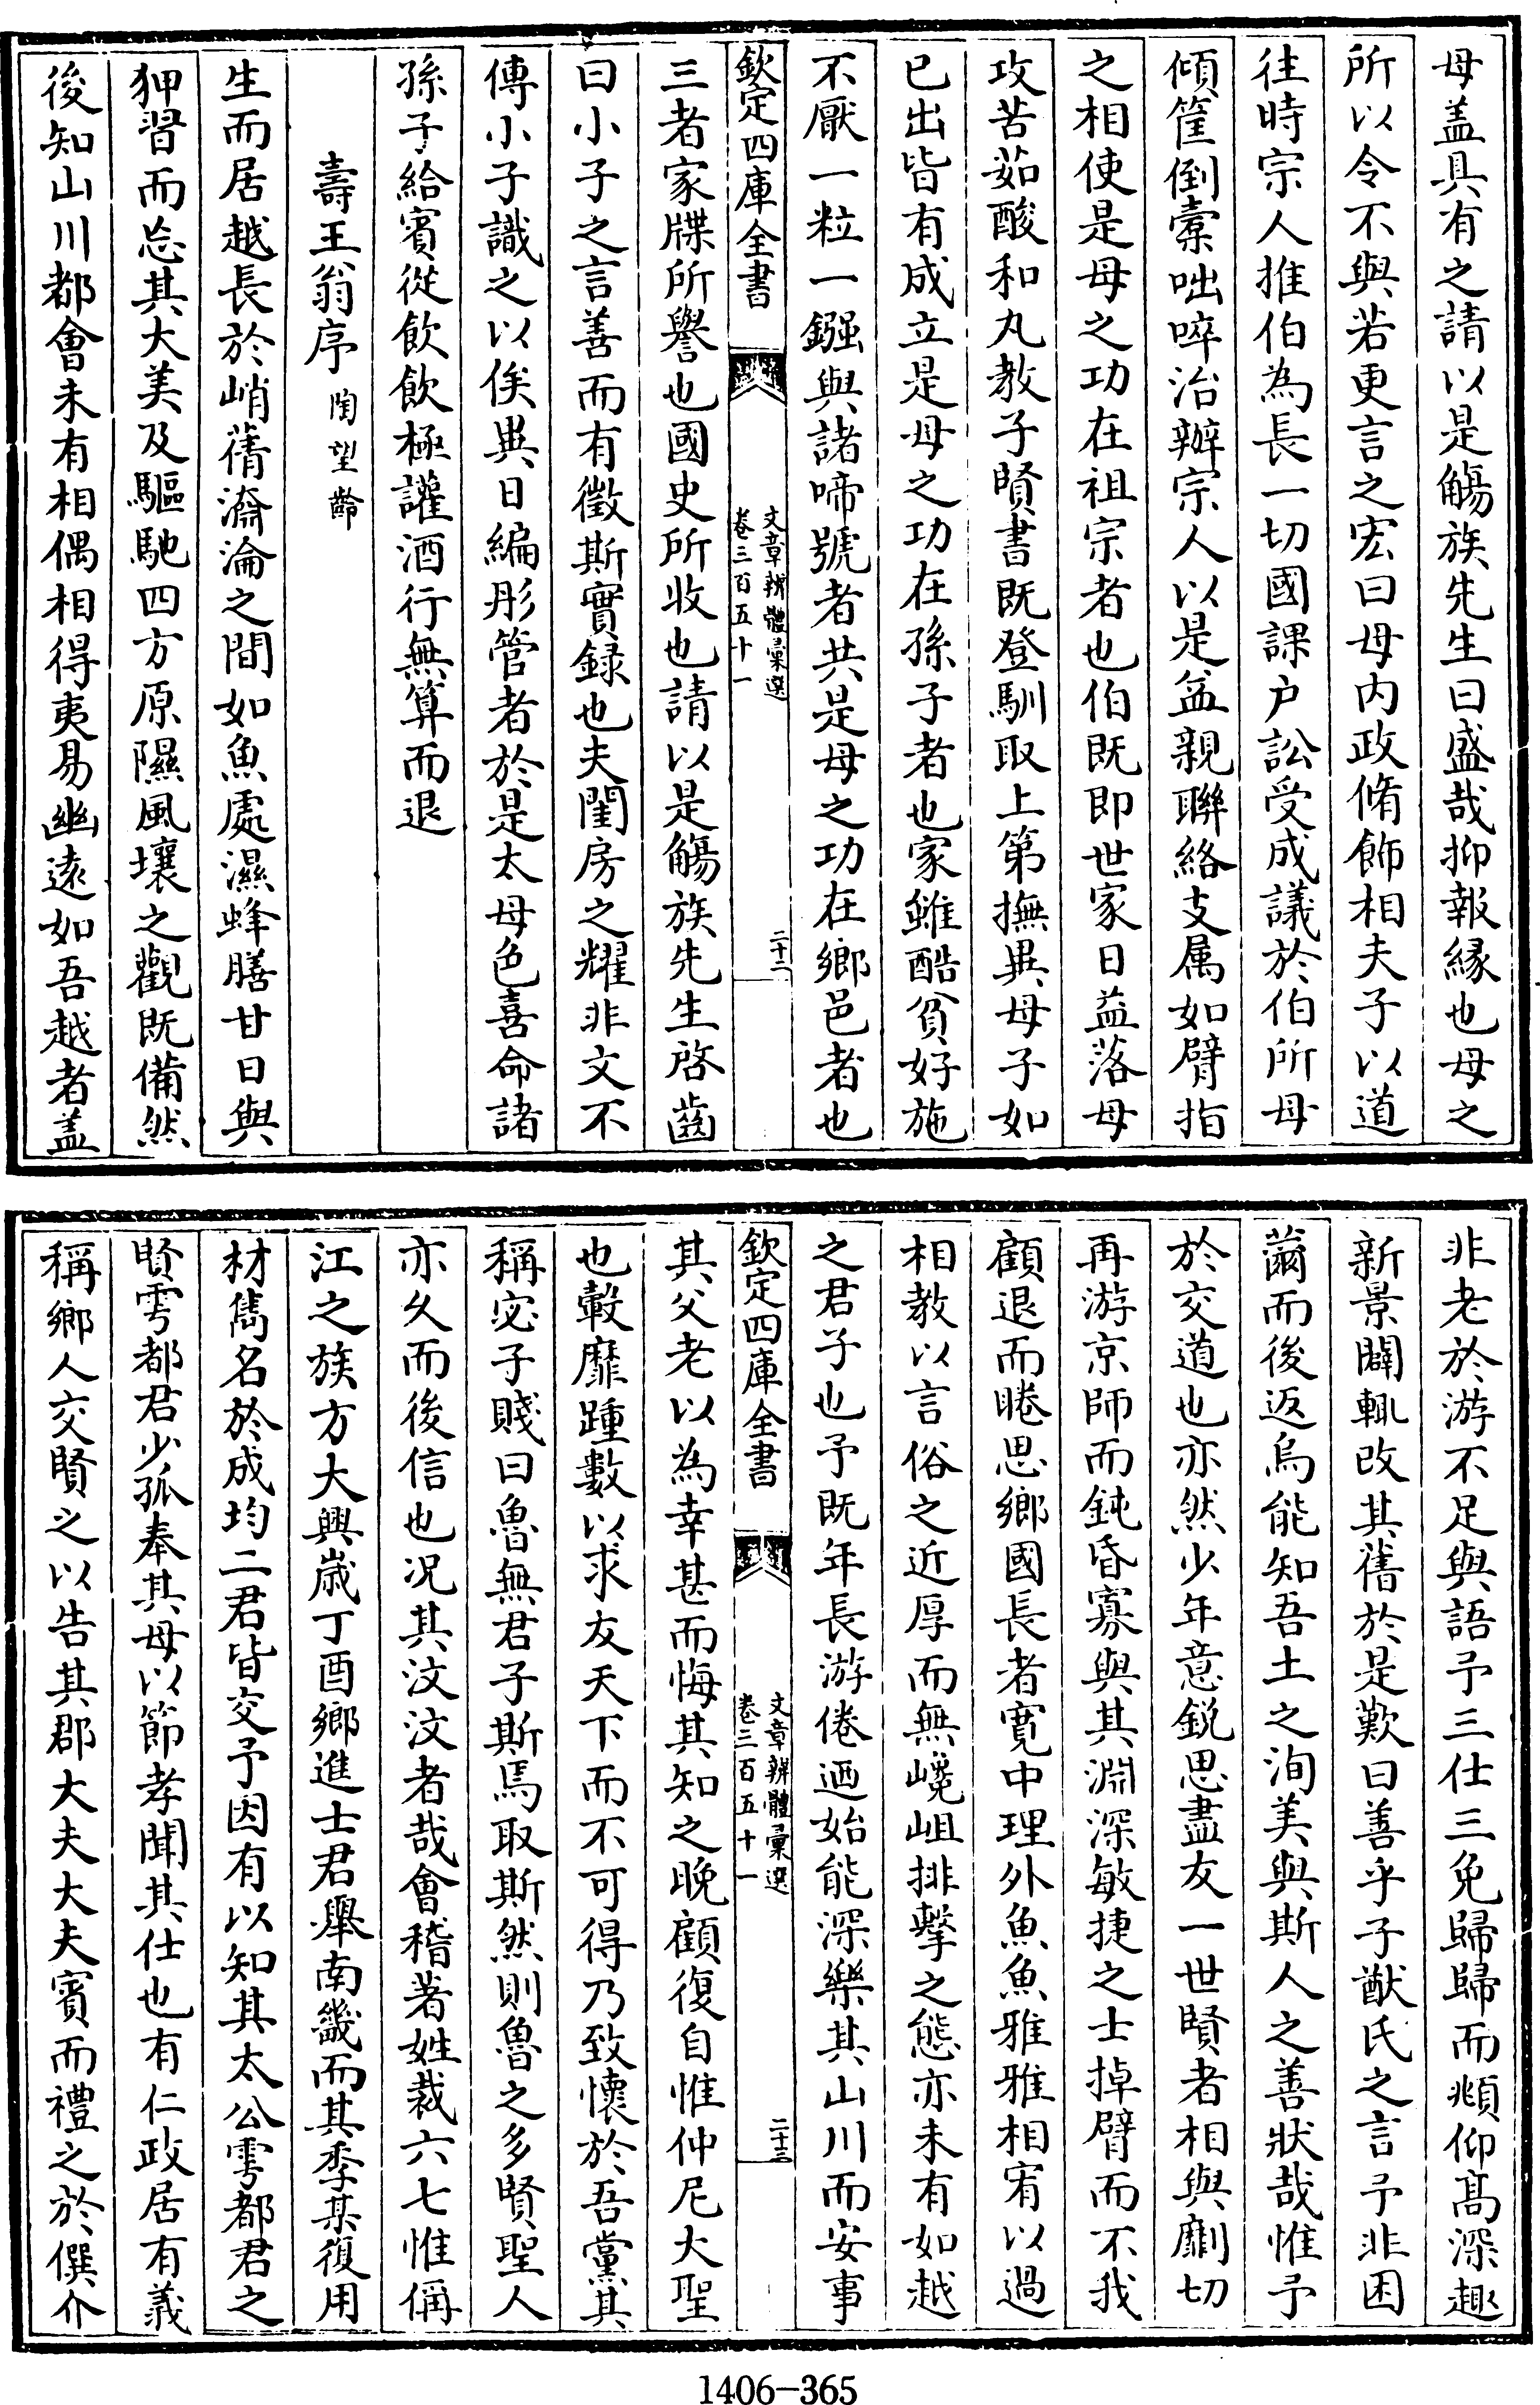 母盖具有之請以是觴族先生曰盛哉抑報縁也母之
所以令不與若更言之宏曰母内政脩飾相夫子以道
往時宗人推伯為長一切國課户訟受成議於伯所母
傾筐倒橐咄啐治辦宗人以是益親聯絡支属如臂指
之相使是母之功在祖宗者也伯既即世家日益落母
攻苦茹酸和丸教子賢書既登馴取上第撫異母子如
已出皆有成立是母之功在孫子者也家雖酷貧好施
不厭一粒一鏹與諸啼號者共是母之功在鄉邑者也
欽定四庫全書
文章辨體彙選
卷三百五十一
二十二
三者家牒所譽也國史所收也請以是觴族先生啓齒
曰小子之言善而有徵斯實録也夫閨房之耀非文不
傳小子識之以俟異日編彤管者於是太母色喜命諸
孫予給賓從飲飲極讙酒行無算而退
壽王翁序 陶望齡
生而居越長於峭蒨瀹淪之間如魚處濕蜂膳甘日與
狎習而忘其大美及驅馳四方原隰風壤之觀既備然
後知山川都會未有相偶相得夷易幽逺如吾越者盖
非老於游不足與語予三仕三免歸歸而頫仰髙深趣
新景闢輒改其舊於是歎曰善乎子猷氏之言予非困
薾而後返烏能知吾土之洵美與斯人之善狀哉惟予
於交道也亦然少年意鋭思盡友一世賢者相與劘切
再游京師而鈍昏寡與其淵深敏捷之士掉臂而不我
顧退而睠思鄉國長者寛中理外魚魚雅雅相宥以過
相教以言俗之近厚而無巉岨排擊之態亦未有如越
之君子也予既年長游倦迺始能深樂其山川而安事
欽定四庫全書
文章辨體彙選
卷三百五十一
二十三
其父老以為幸甚而悔其知之晚顧復自惟仲尼大聖
也轂靡踵數以求友天下而不可得乃致懷於吾黨其
稱宓子賤曰魯無君子斯焉取斯然則魯之多賢聖人
亦久而後信也况其汶汶者哉會稽著姓裁六七惟偁
江之族方大興歳丁酉鄉進士君舉南畿而其季某復用
材雋名於成均二君皆交予因有以知其太公雩都君之
賢雩都君少孤奉其母以節孝聞其仕也有仁政居有義
稱鄉人交賢之以告其郡大夫大夫賓而禮之於僎介
1406-365